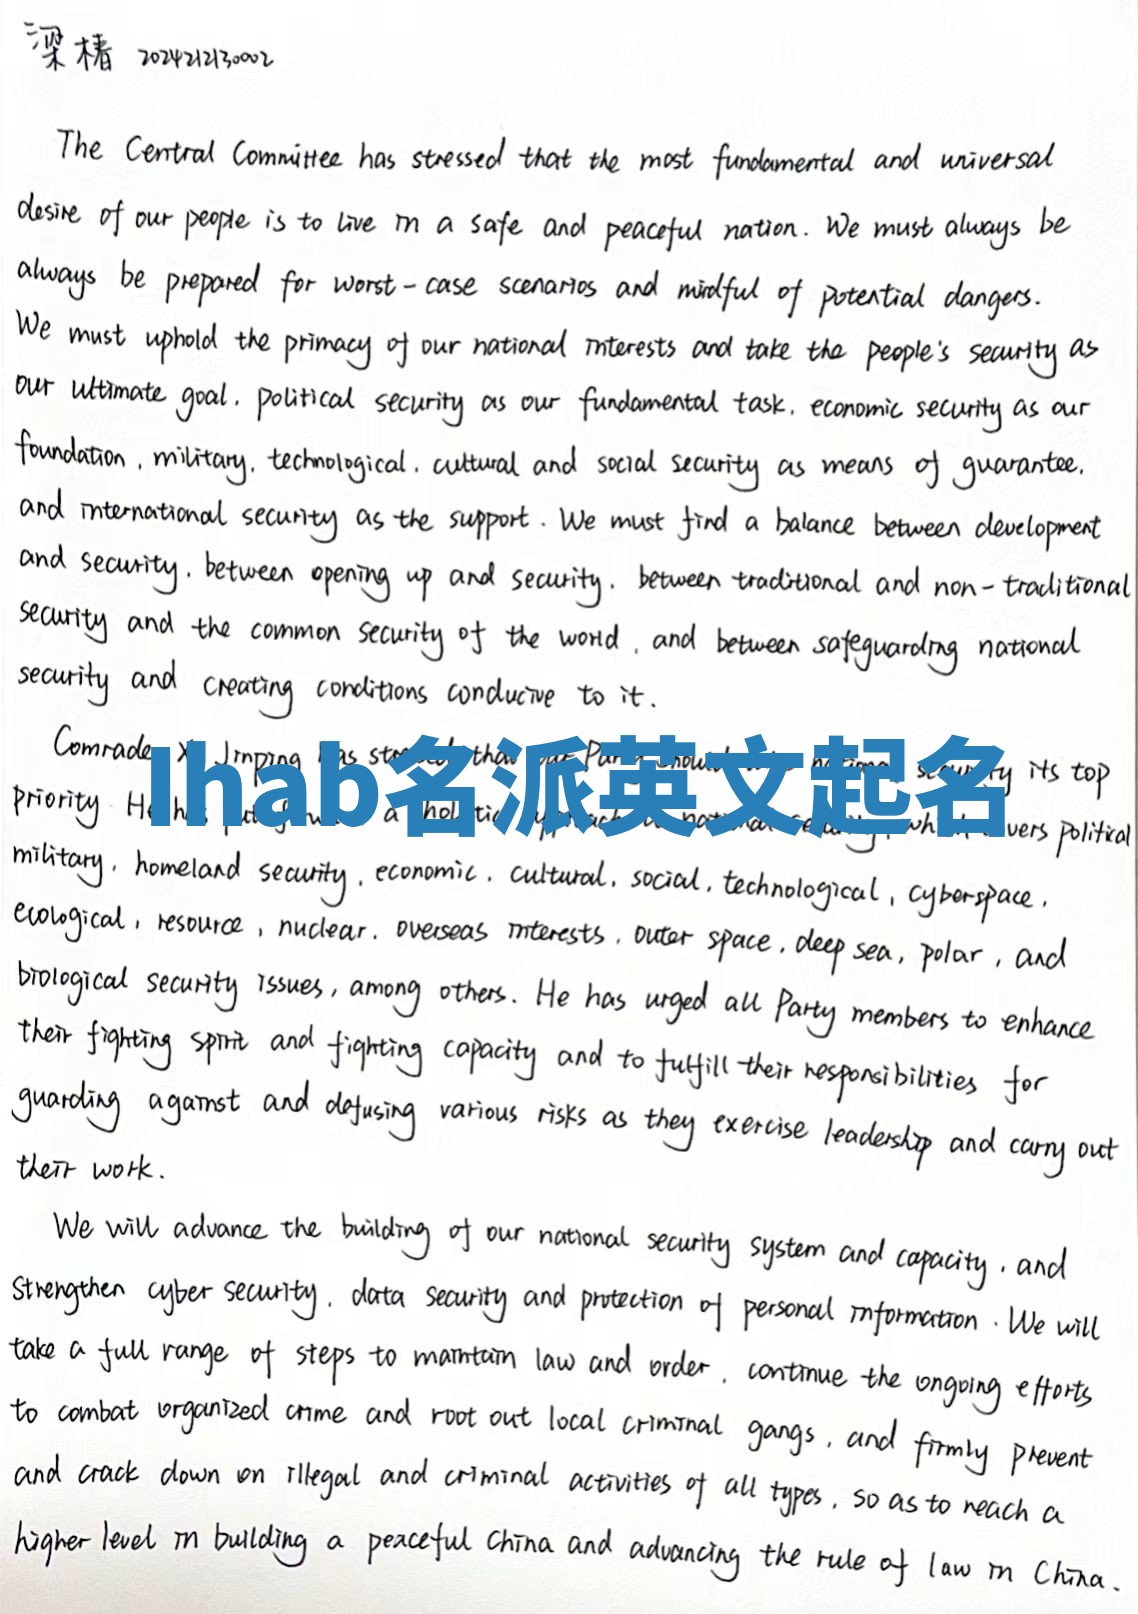 梁椿 2024212130002
The Central Committee has stressed that the most fundamental and universal
desire of our people is to live in a safe and peaceful nation. We must always be
always be prepared for worst-case scenarios and mindful of potential dangers.
We must uphold the primacy of our national interests and take the people's security as
our ultimate goal, political security as our fundamental task, economic security as our
foundation, military, technological, cultural and social security as means of guarantee,
and international security as the support. We must find a balance between development
and security, between opening up and security, between traditional and non-traditional
security and the common security of the world, and between safeguarding national
security and creating conditions conducive to it.
Comrade Xi Jinping has stressed that our Party should national security its top
Ihab名派英文起名
priority He has a holistic approach national security, which covers political
military, homeland security, economic, cultural, social, technological, cyberspace,
ecological, resource, nuclear, overseas interests, outer space, deep sea, polar, and
biological security issues, among others. He has urged all Party members to enhance
their fighting spirit and fighting capacity and to fulfill their responsibilities for
guarding against and defusing various risks as they exercise leadership and carry out
their work.
We will advance the building of our national security system and capacity, and
strengthen cyber security, data security and protection of personal information. We will
take a full range of steps to maintain law and order, continue the ongoing efforts
to combat organized crime and root out local criminal gangs, and firmly prevent
and crack down on illegal and criminal activities of all types, so as to reach a
higher level in building a peaceful China and advancing the rule of law in China.